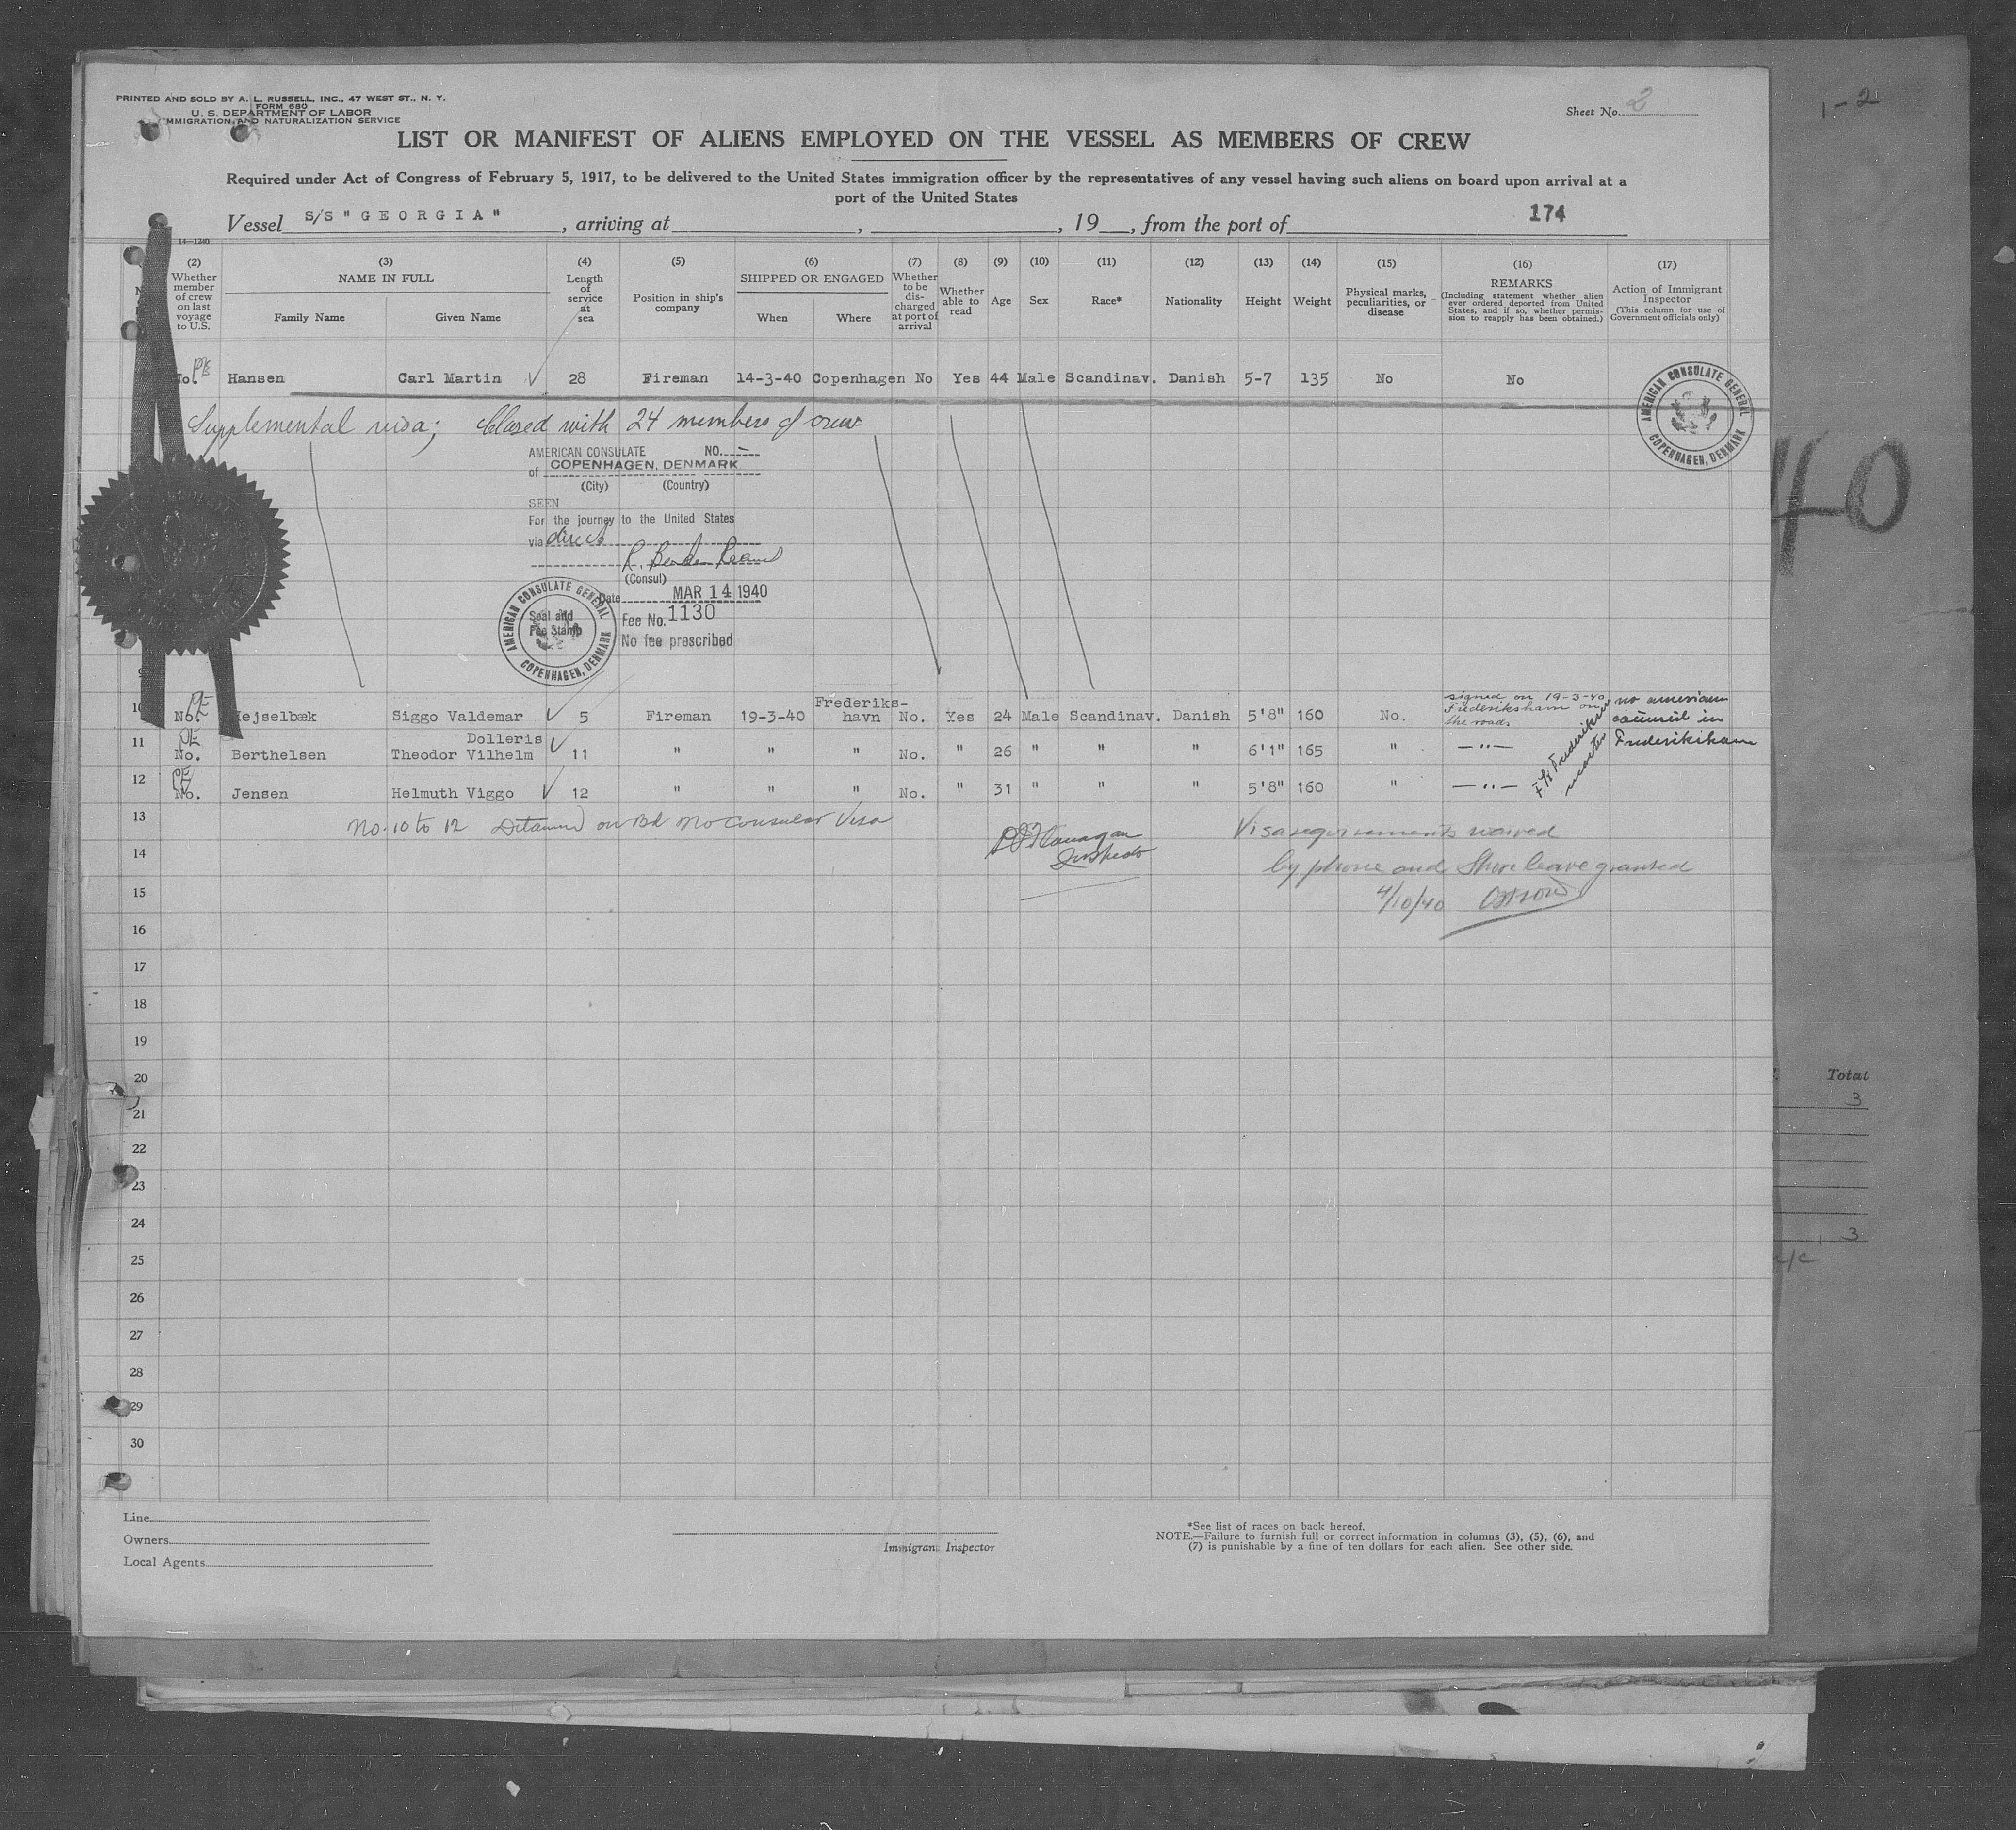 PRINTED AND SOLD BY A. L. RUSSELL, INC., 47 WEST ST., N. Y.
FORM 680
U. S. DEPARTMENT OF LABOR
IMMIGRATION AND NATURALIZATION SERVICE
Sheet No. 2
1-2
LIST OR MANIFEST OF ALIENS EMPLOYED ON THE VESSEL AS MEMBERS OF CREW
Required under Act of Congress of February 5, 1917, to be delivered to the United States immigration officer by the representatives of any vessel having such aliens on board upon arrival at a
port of the United States
Vessel S/S "GEORGIA", arriving at , , 19 , from the port of 174
14-1240
(2) (3) (4) (5) (6) (7) (8) (9) (10) (11) (12) (13) (14) (15) (16) (17)
Whether member of crew on last voyage to U.S.
NAME IN FULL
Family Name
Given Name
Length of service at sea
Position in ship's company
SHIPPED OR ENGAGED
When
Where
Whether to be discharged at port of arrival
Whether able to read
Age
Sex
Race*
Nationality
Height
Weight
Physical marks, peculiarities, or disease
REMARKS
(Including statement whether alien ever ordered deported from United States, and if so, whether permission to reapply has been obtained.)
Action of Immigrant Inspector
(This column for use of Government officials only)
No. PE Hansen Carl Martin 28 Fireman 14-3-40 Copenhagen No Yes 44 Male Scandinav. Danish 5-7 135 No No
AMERICAN CONSULATE GENERAL COPENHAGEN, DENMARK
Supplemental visa; Closed with 24 members of crew
AMERICAN CONSULATE NO. -
of COPENHAGEN, DENMARK
(City) (Country)
SEEN
For the journey to the United States
via direct
(Consul)
Date MAR 14 1940
Fee No. 1130
No fee prescribed
AMERICAN CONSULATE GENERAL COPENHAGEN, DENMARK
Seal and
Fee Stamp
40
9
10 PE No. Hejselbæk Siggo Valdemar 5 Fireman 19-3-40 Frederikshavn No. Yes 24 Male Scandinav. Danish 5'8" 160 No. signed on 19-3-40 Frederikshavn on the roads no american council in Frederikshavn
11 PE No. Berthelsen Dolleris Theodor Vilhelm 11 " " " No. " 26 " " " 6'1" 165 " —"—
12 PE No. Jensen Helmuth Viggo 12 " " " No. " 31 " " " 5'8" 160 " —"—
13 No. 10 to 12 Detained on Bd no consular Visa
Inspector
Visa requirements waived
by phone and Shore leave granted
4/10/40
14
15
16
17
18
19
20
21
22
23
24
25
26
27
28
29
30
Total
3
3
Line
Owners
Local Agents
Immigrant Inspector
*See list of races on back hereof.
NOTE.—Failure to furnish full or correct information in columns (3), (5), (6), and
(7) is punishable by a fine of ten dollars for each alien. See other side.